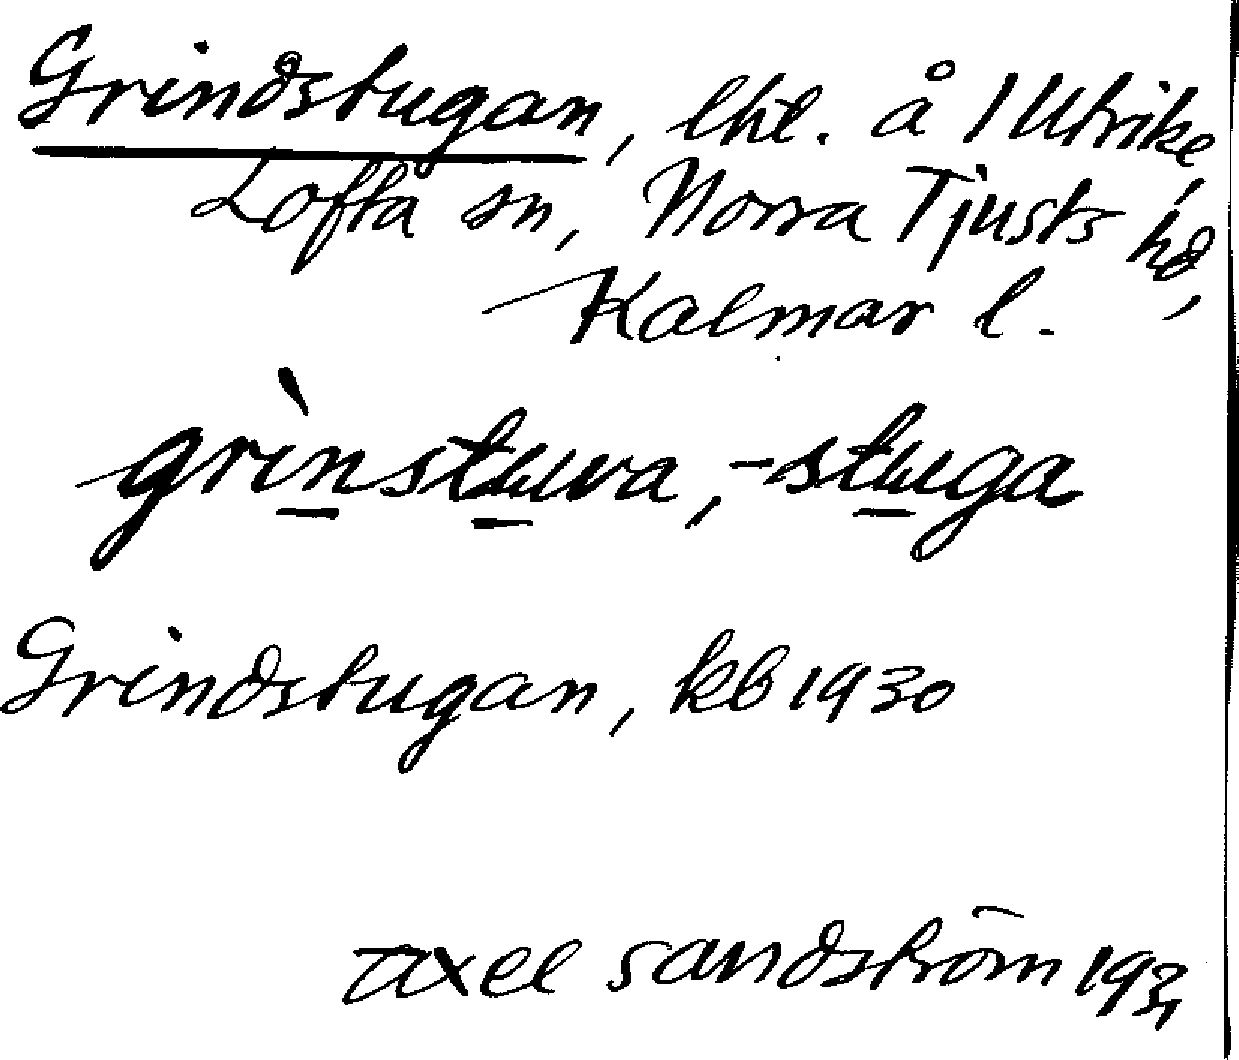 Grindstugan, lht. å 1 Ulrike,
Lofta sn, Norra Tjusts hd,
Kalmar l.
grìnstuva, -stuga
Grindstugan, kb 1930
Axel Sandström 1931